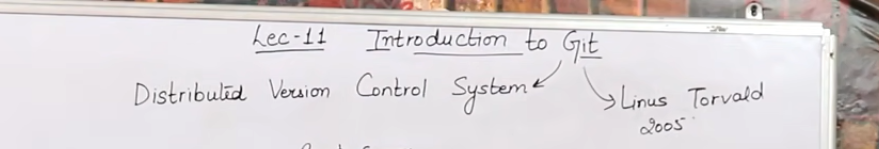 Lec-11 Introduction to Git
Distributed Version Control System
Linus Torvald
2005